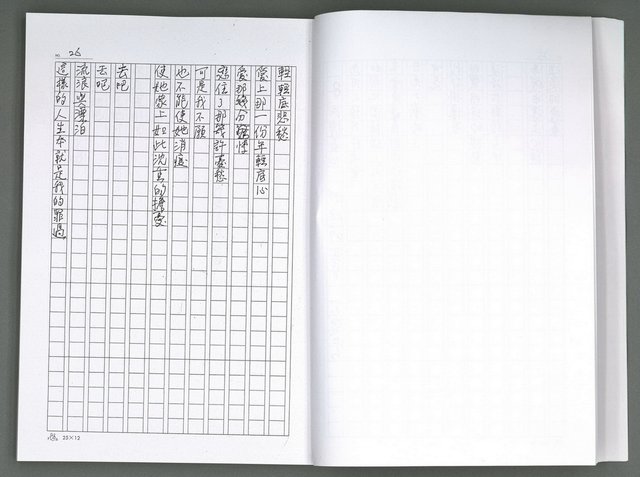 26
輕輕底悲愁
愛上那一份年輕底心
愛那幾分
惹住了那幾許憂愁
可是我不願
也不能使她消瘦
使她像上如此沈重的擔憂
去吧
去吧
流浪與漂泊
這樣的人生本就是我的罪過
25×12